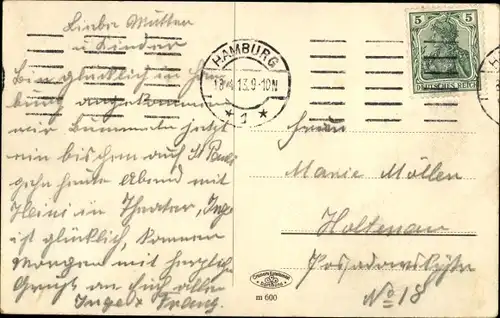 Liebe Mutter
u Kinder
Bin glücklich in Ham
burg angekommen
wir bummeln jetzt
ein bischen auf St Pauli
gehn heute Abend mit
Heini in Theater, Inge
ist glücklich, kommen
morgen mit herzlich
Gruß an Euch allen
Inge & Franz.
HAMBURG
13. 9-10N
* 1 *
5 5
DEUTSCHES REICH
Frau
Marie Möllen
Holtenau
No 18
m 600